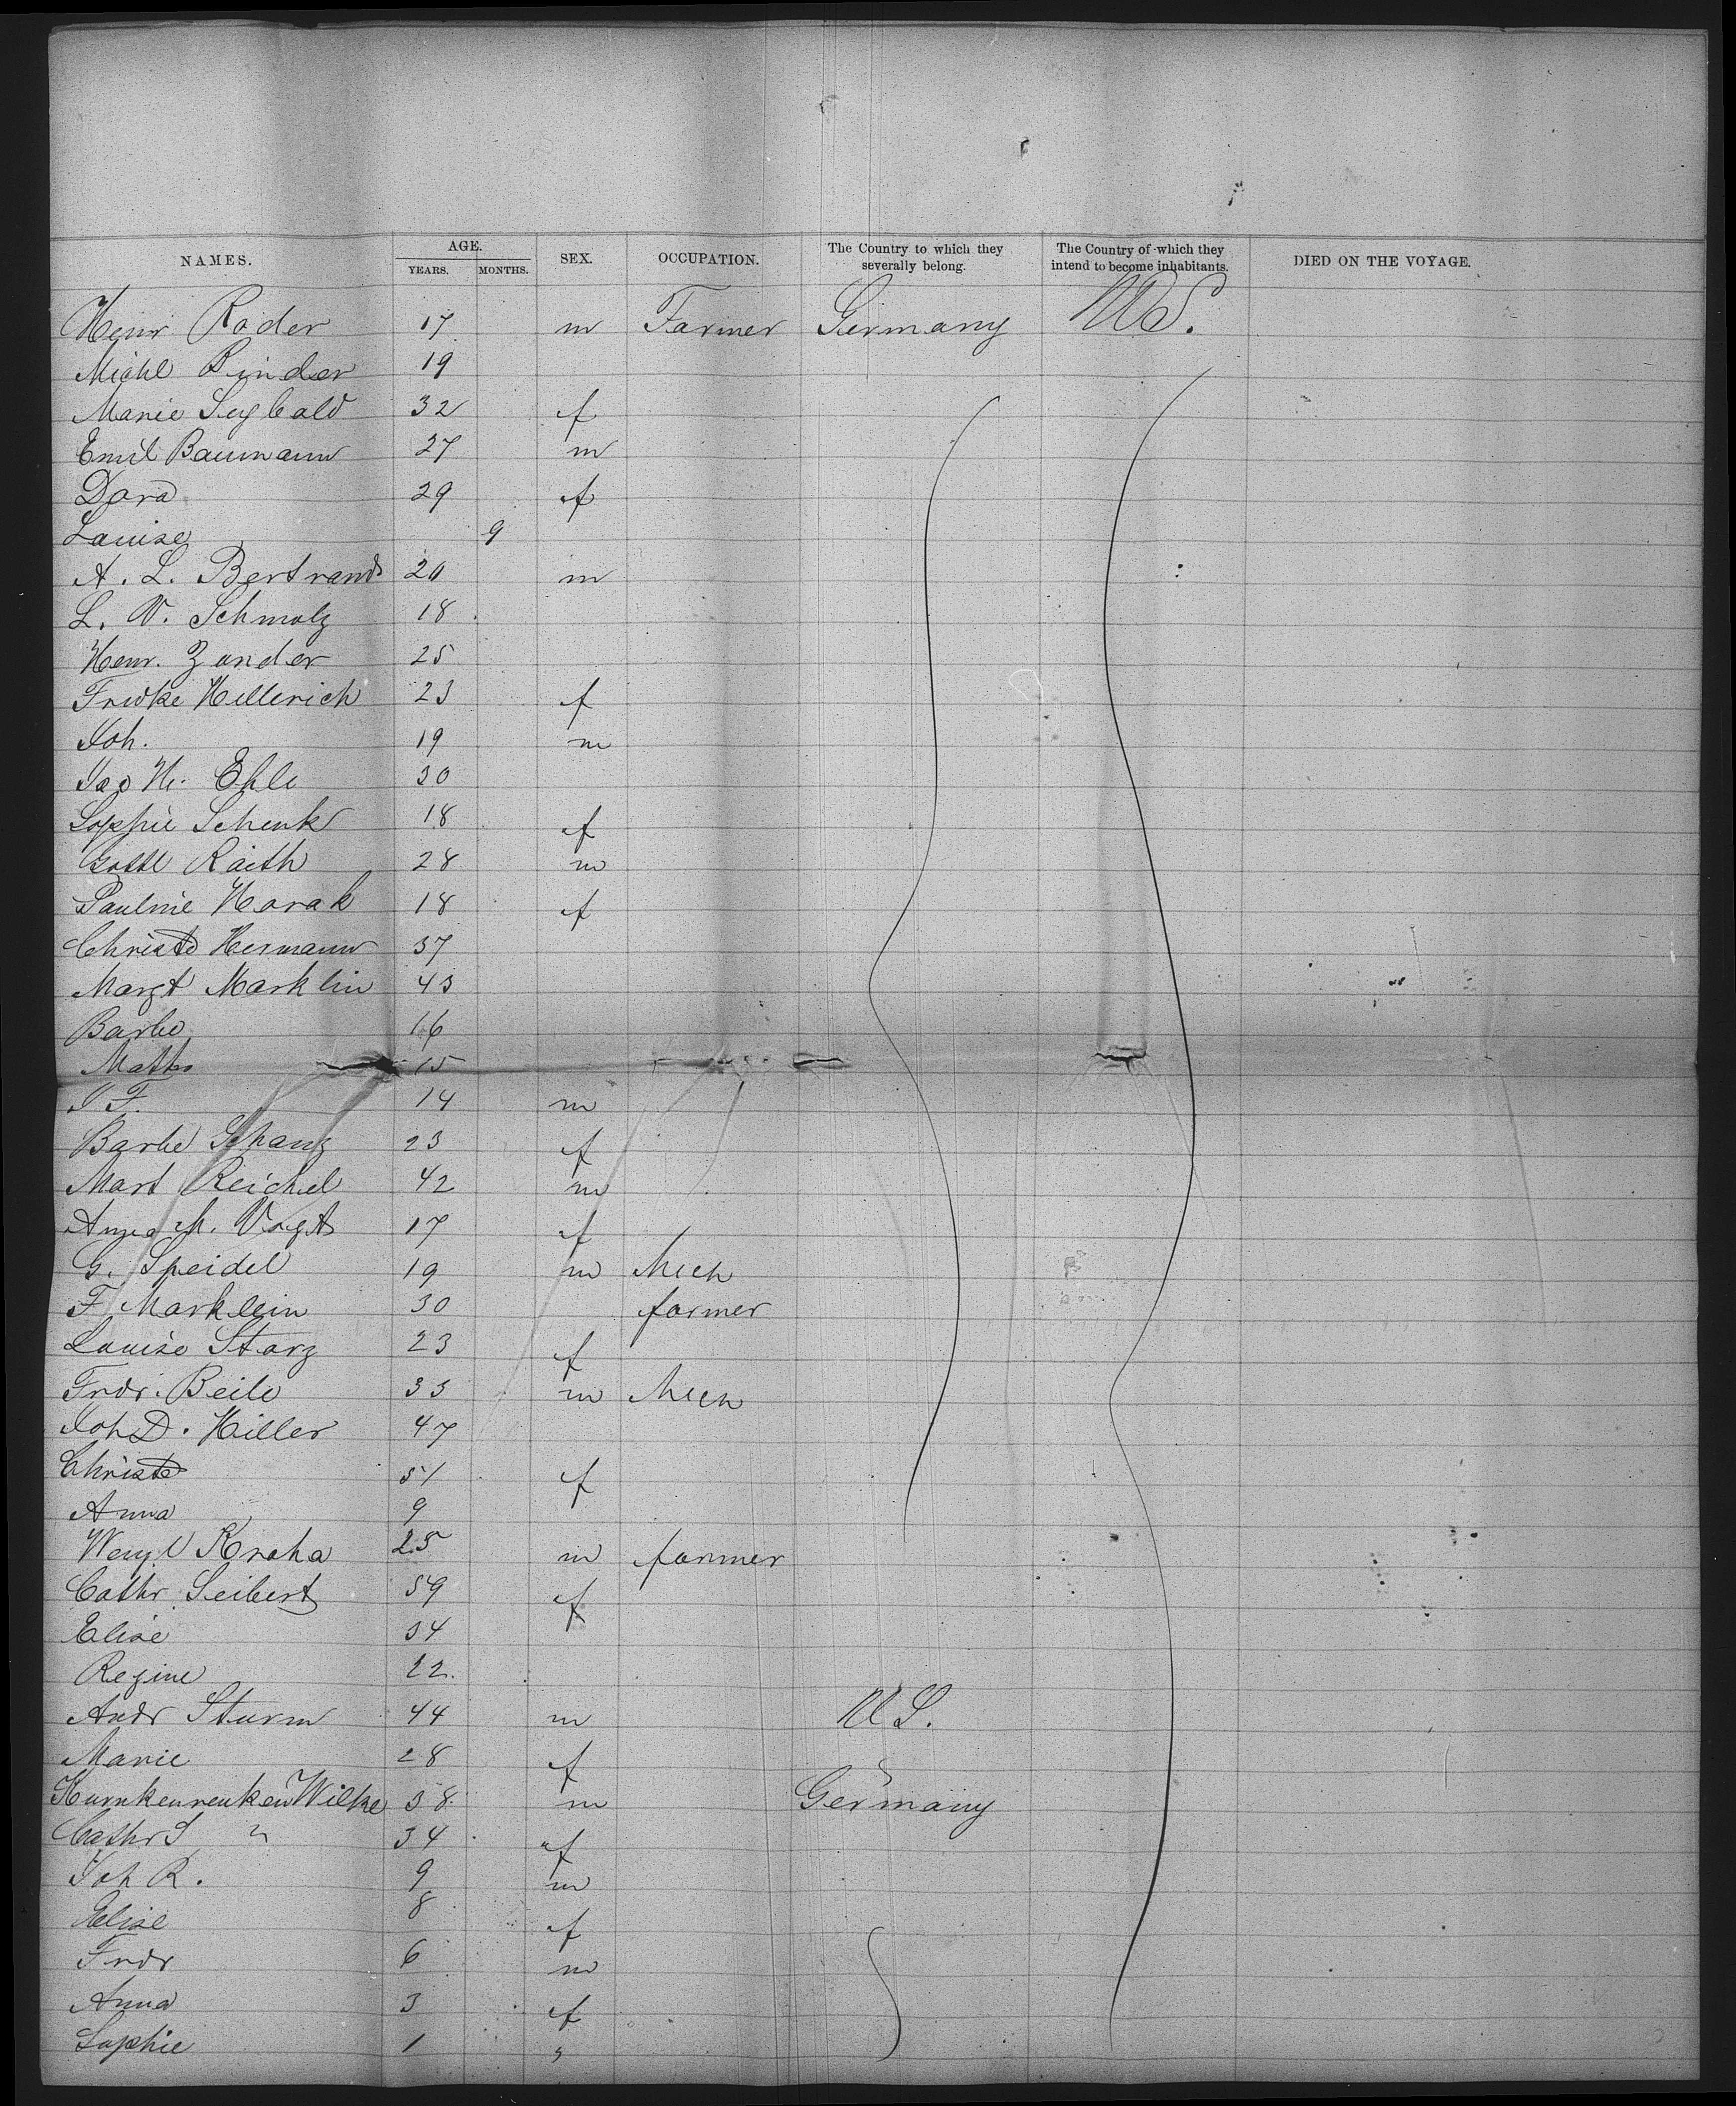 NAMES. AGE. SEX. OCCUPATION. The Country to which they severally belong. The Country of which they intend to become inhabitants. DIED ON THE VOYAGE.
YEARS. MONTHS.
Henr Roder 17 m Farmer Germany U.S.
Michl Binder 19
Marie Seybald 32 f
Emil Baumann 27 m
Dora 29 f
Louise 9
A. L. Bertrand 20 m
L. V. Schmalz 18
Henr. Zander 25
Fredke Hellerich 23 f
Joh. 19 m
Jao H. Ehle 30
Sophie Schenk 18 f
Gottl Raith 28 m
Pauline Horak 18 f
Christe Hermann 37
Margt Marklin 43
Barbe 16
Mathe 15
J F. 14 m
Barbe Schanz 23 f
Mart Reichel 42 m
Anna M. Vogt 17 f
G. Speidel 19 m Mech
F Marklein 30 farmer
Louise Starz 23 f
Fredr. Beile 33 m Mech
Joh D. Hiller 47
Christe 51 f
Anna 9
Wenzl Kraha 25 m farmer
Cathr Seibert 59 f
Elise 34
Regine 22
Andr Sturm 44 m U S.
Marie 28 f
Wilke 38 m Germany
Cathr S " 34 f
Joh R. 9 m
Elise 8 f
Fredr 6 m
Anna 3 f
Sophie 1 "